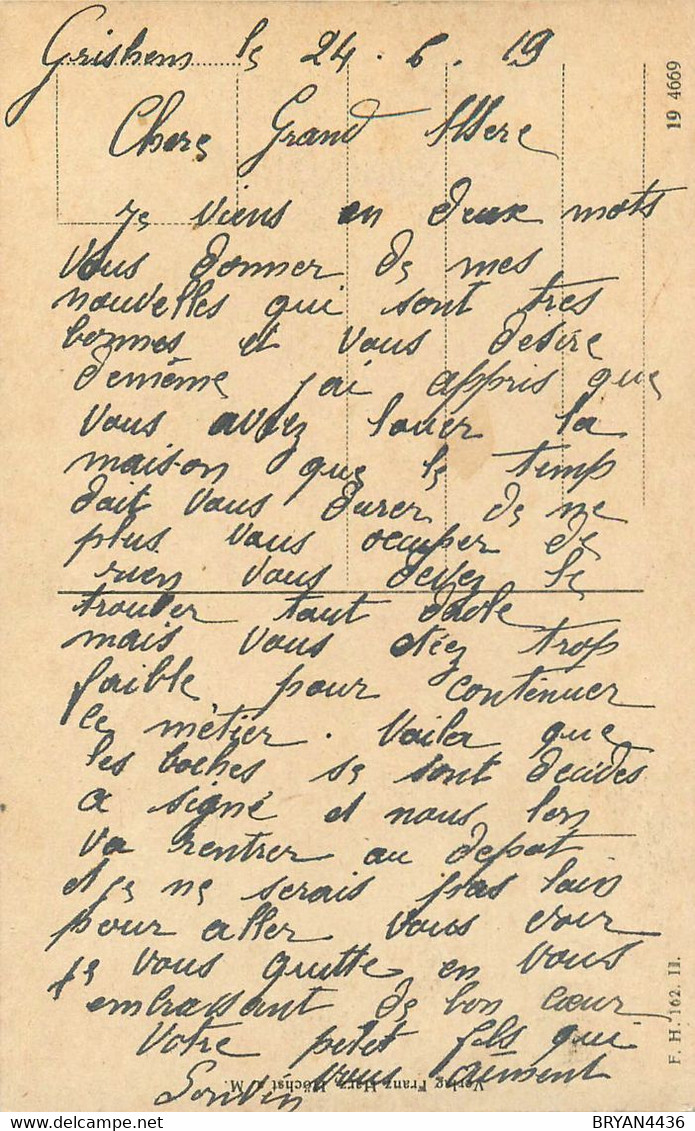 Grishem le 24. 6. 19
Chere Grand Mere
je viens en deux mots
vous donner de mes
nouvelles qui sont tres
bonnes et vous desire
demême jai appris que
vous avez louer la
maison que le temp
doit vous durer de ne
plus vous ocuper de
rien vous devez le
trouver tout drole
mais vous étéz trop
faible pour continuer
le métier. Voila que
les boches se sont decides
a signé et nous lon
va rentrer au depot
et je ne serais pas loin
pour aller vous voir
je vous quitte en vous
embrassant de bon cœur
Votre petet fils qui
vous aiment
19 4669
F. H. 162. II.
Verlag Franz Harz, Höchst a. M.
BRYAN4436